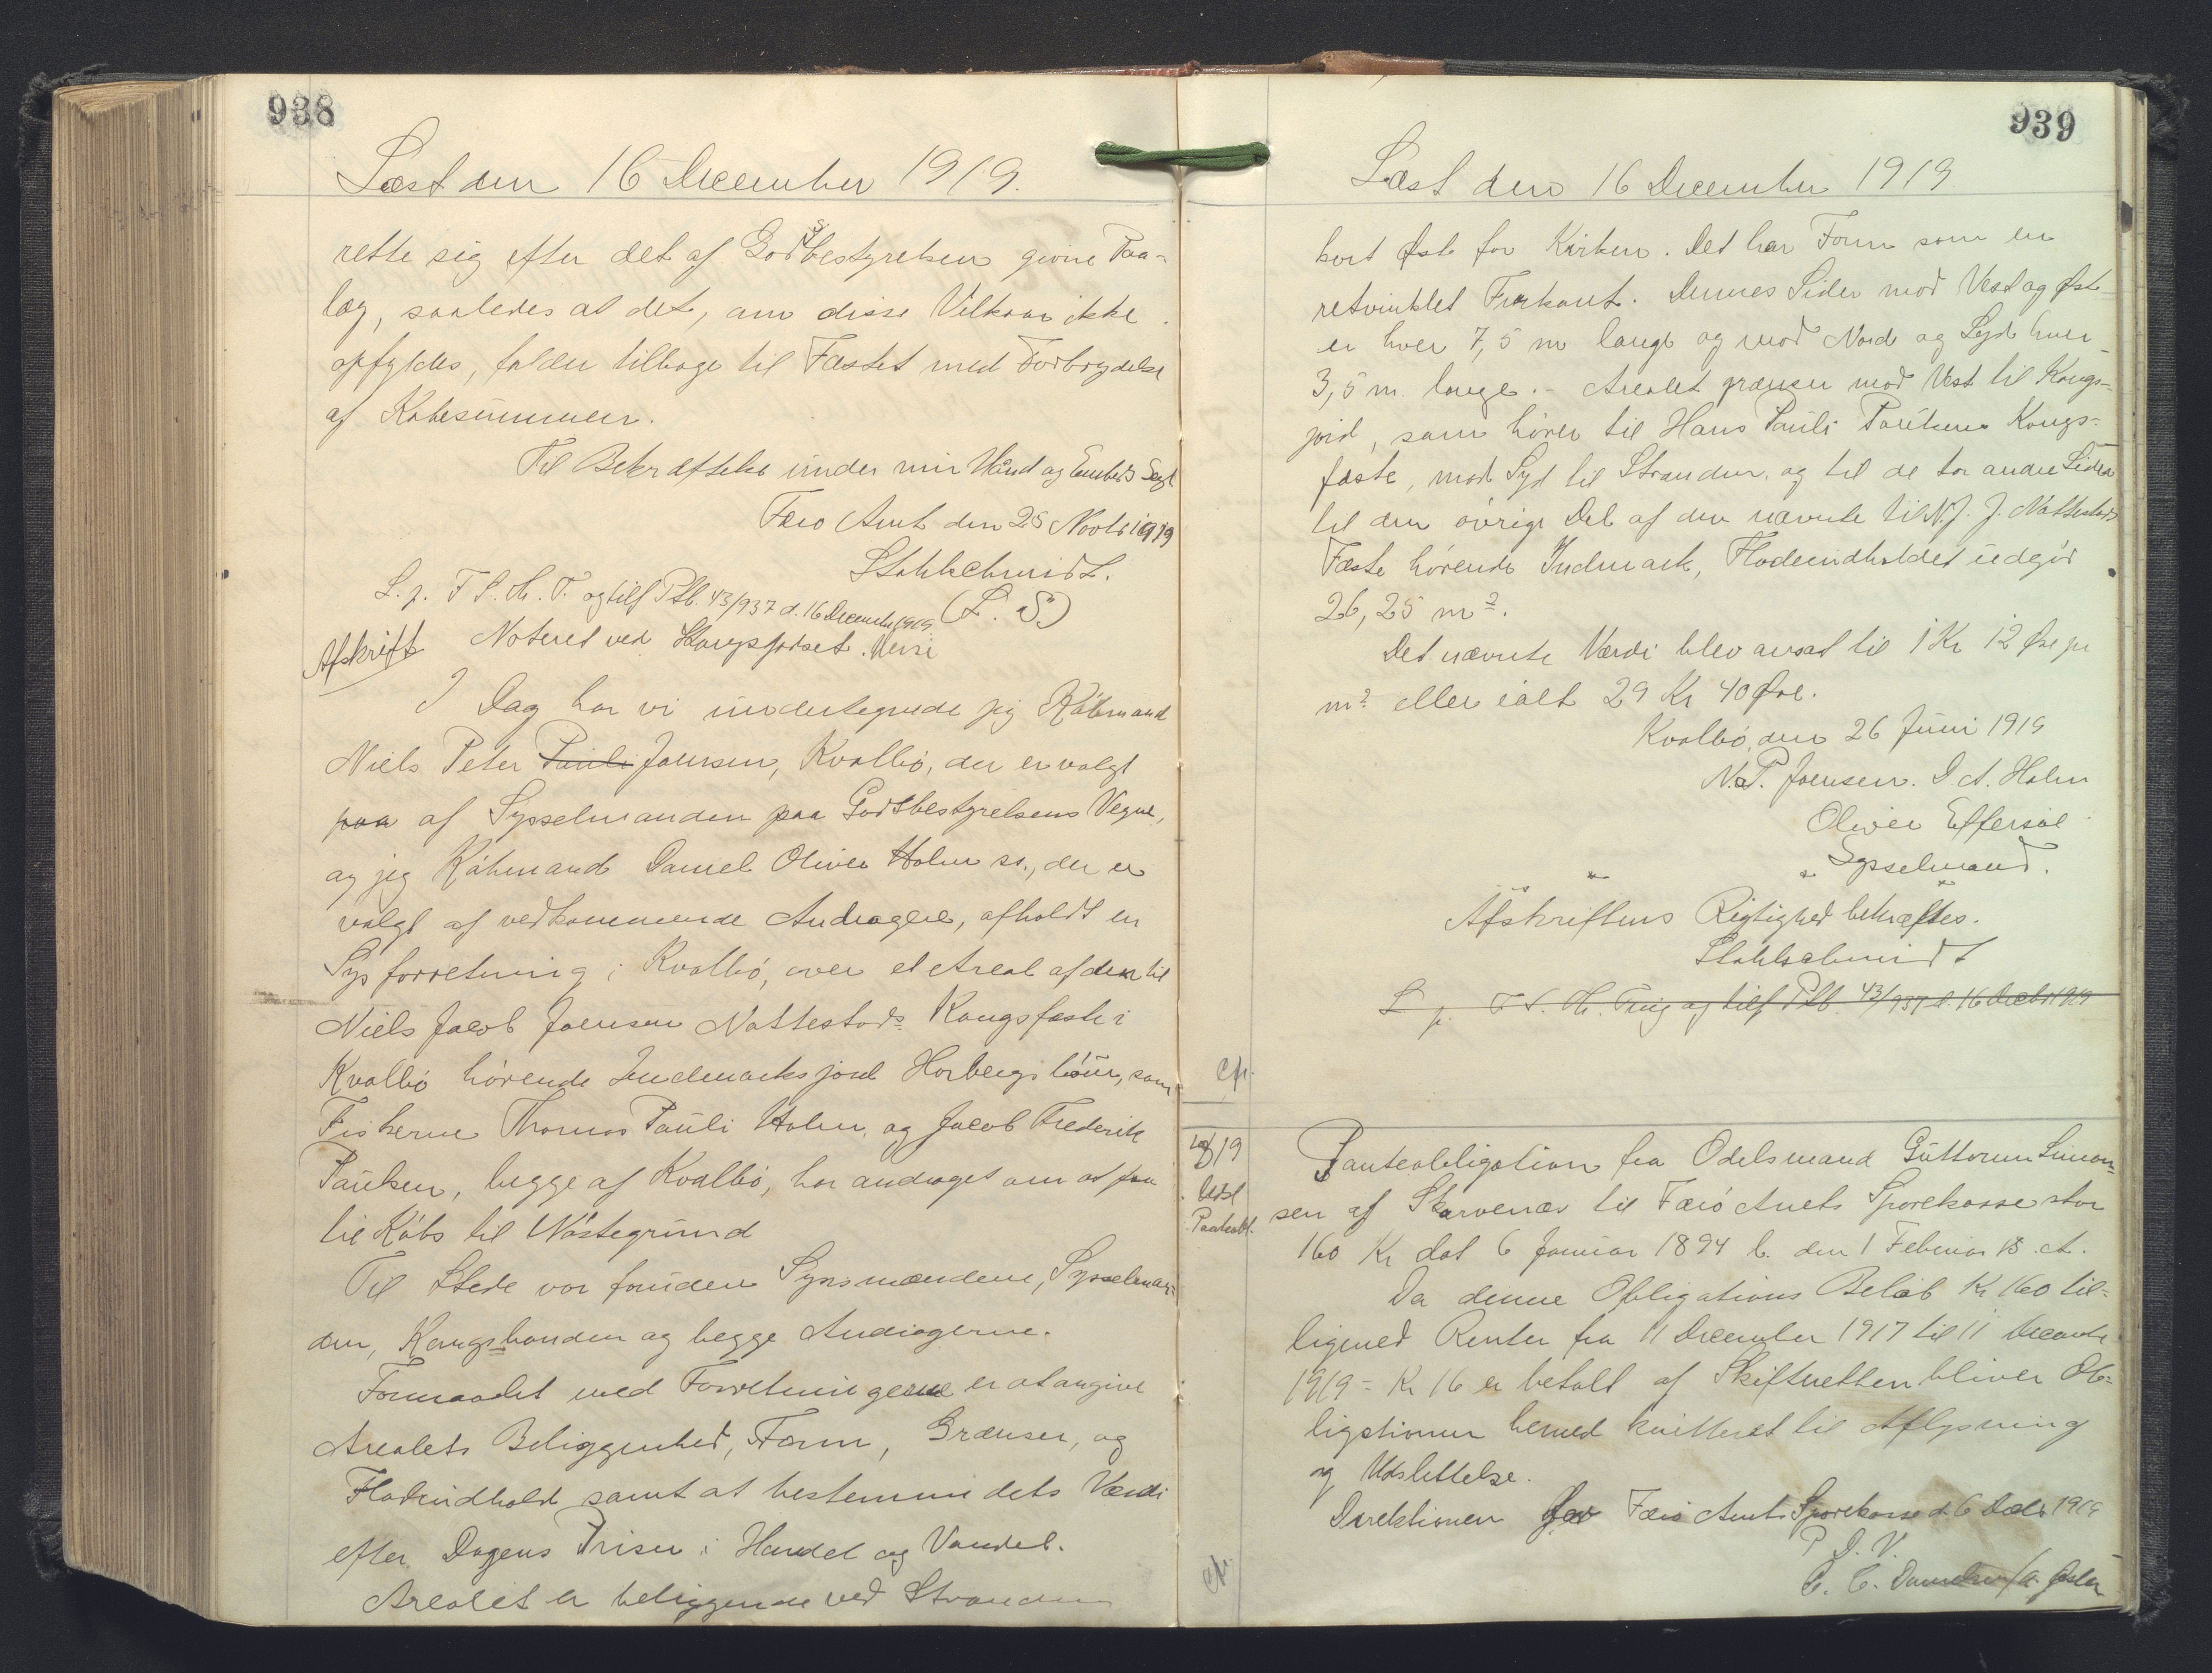 938
Læst den 16 December 1919.
rette sig efter det af Godsbestyrelsen givne Paa-
læg, saaledes at det, om disse Vilkaar ikke
opfyldes, falder tilbage til Fæstet med Fortbrydelse
af Købesummen.
Til Bekræftelse under min Haand og Embeds Segl
Færø Amt den 25 Novbr 1919
Stahlschmidt.
(L. S.)
L. p. F. S. M. T. og tilf Ptb. 43/937 d. 16 December 1919
Afskrift Noteret ved Kongsgodset.
I Dag har vi undertegnede jeg Købmand
Niels Peter Pauli Joensen, Kvalbø, der er valgt
paa af Sysselmanden paa Godsbestyrelsens Vegne,
og jeg Købmand Daniel Oliver Holm ss., der er
valgt af vedkommende Andragere, afholdt en
Synsforretning i Kvalbø, over et Areal af den til
Niels Jacob Joensen Nattestads Kongsfæste i
Kvalbø hørende Indmarksjord Horbergs bøur, som
Fiskerne Thomas Pauli Holm og Jacob Frederik
Paulsen, begge af Kvalbø, har andraget om at faa
til Købs til Nöstegrund
Til Stede var foruden Synsmændene, Sysselman-
den, Kongsbonden og begge Andragerne.
Formaalet med Forretningerne er at angive
Arealets Beliggenhed, Form, Grænser, og
Fladeindhold samt at bestemme dets Værdi
efter Dagens Priser i Handel og Vandel.
Arealet er beliggende ved Stranden
939
Læst den 16 December 1919
kort Øst for Kirken. Det har Form som en
retvinklet Firkant. Dennes Sider mod Vest og Øst
er hver 7,5 m lange og mod Nord og Syd hver
3,5 m. lange. - Arealet grænser mod Vest til Kongs-
jord, som hører til Hans Pauli Poulsens Kongs-
fæste, mod Syd til Stranden, og til de to andre Sider
til den øvrige Del af den nævnte til N. J. J. Nattestads
Fæste hørende Indmark, Fladeindholdet udgør
26,25 m².
Det nævnte Værdi blev ansat til 1 Kr 12 Øre pr
m² eller ialt 29 Kr 40 Øre.
Kvalbø, den 26 Juni 1919
N. P. Joensen. D. A. Holm
Oliver Effersøe
Sysselmand.
Afskriftens Rigtighed bekræftes.
Stahlschmidt
L. p. F. S. M. Ting og tilf Ptb. 43/937 d. 16 Decbr 1919
Cfr.
19
Udsl
Panteobl.
Panteobligation fra Odelsmand Guttorm Simon-
sen af Skarvenæs til Færø Amts Sparekasse stor
160 Kr dat 6 Januar 1894 l. den 1 Februar s. A.
Da denne Obligations Beløb Kr 160 til-
ligemed Renter fra 11 December 1917 til 11 December
1919 = Kr 16 er betalt af Skifteretten bliver Ob-
ligationen herved kvitteret til Aflysning
og Udslettelse.
Direktionen for Færø Amts Sparekasse d. 6 Decbr 1919
P. D. V.
C. C. Danielsen
Cfr.